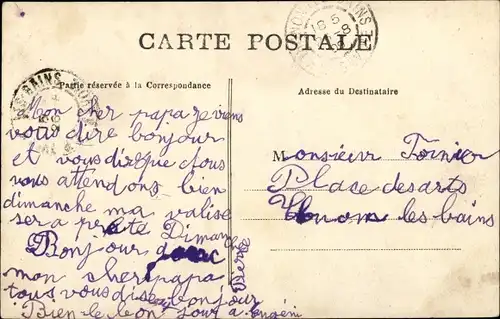 CARTE POSTALE
Partie réservée à la Correspondance
Adresse du Destinataire
Mon cher papa je viens
vous dire bonjour
et vous dire que tous
vous attendons bien
dimanche ma valise
sera prete Dimanche
Bonjour
mon cher papa
tous vous dise bonjour
Bien le bon jour a
Monsieur Fornier
Place des arts
les bains